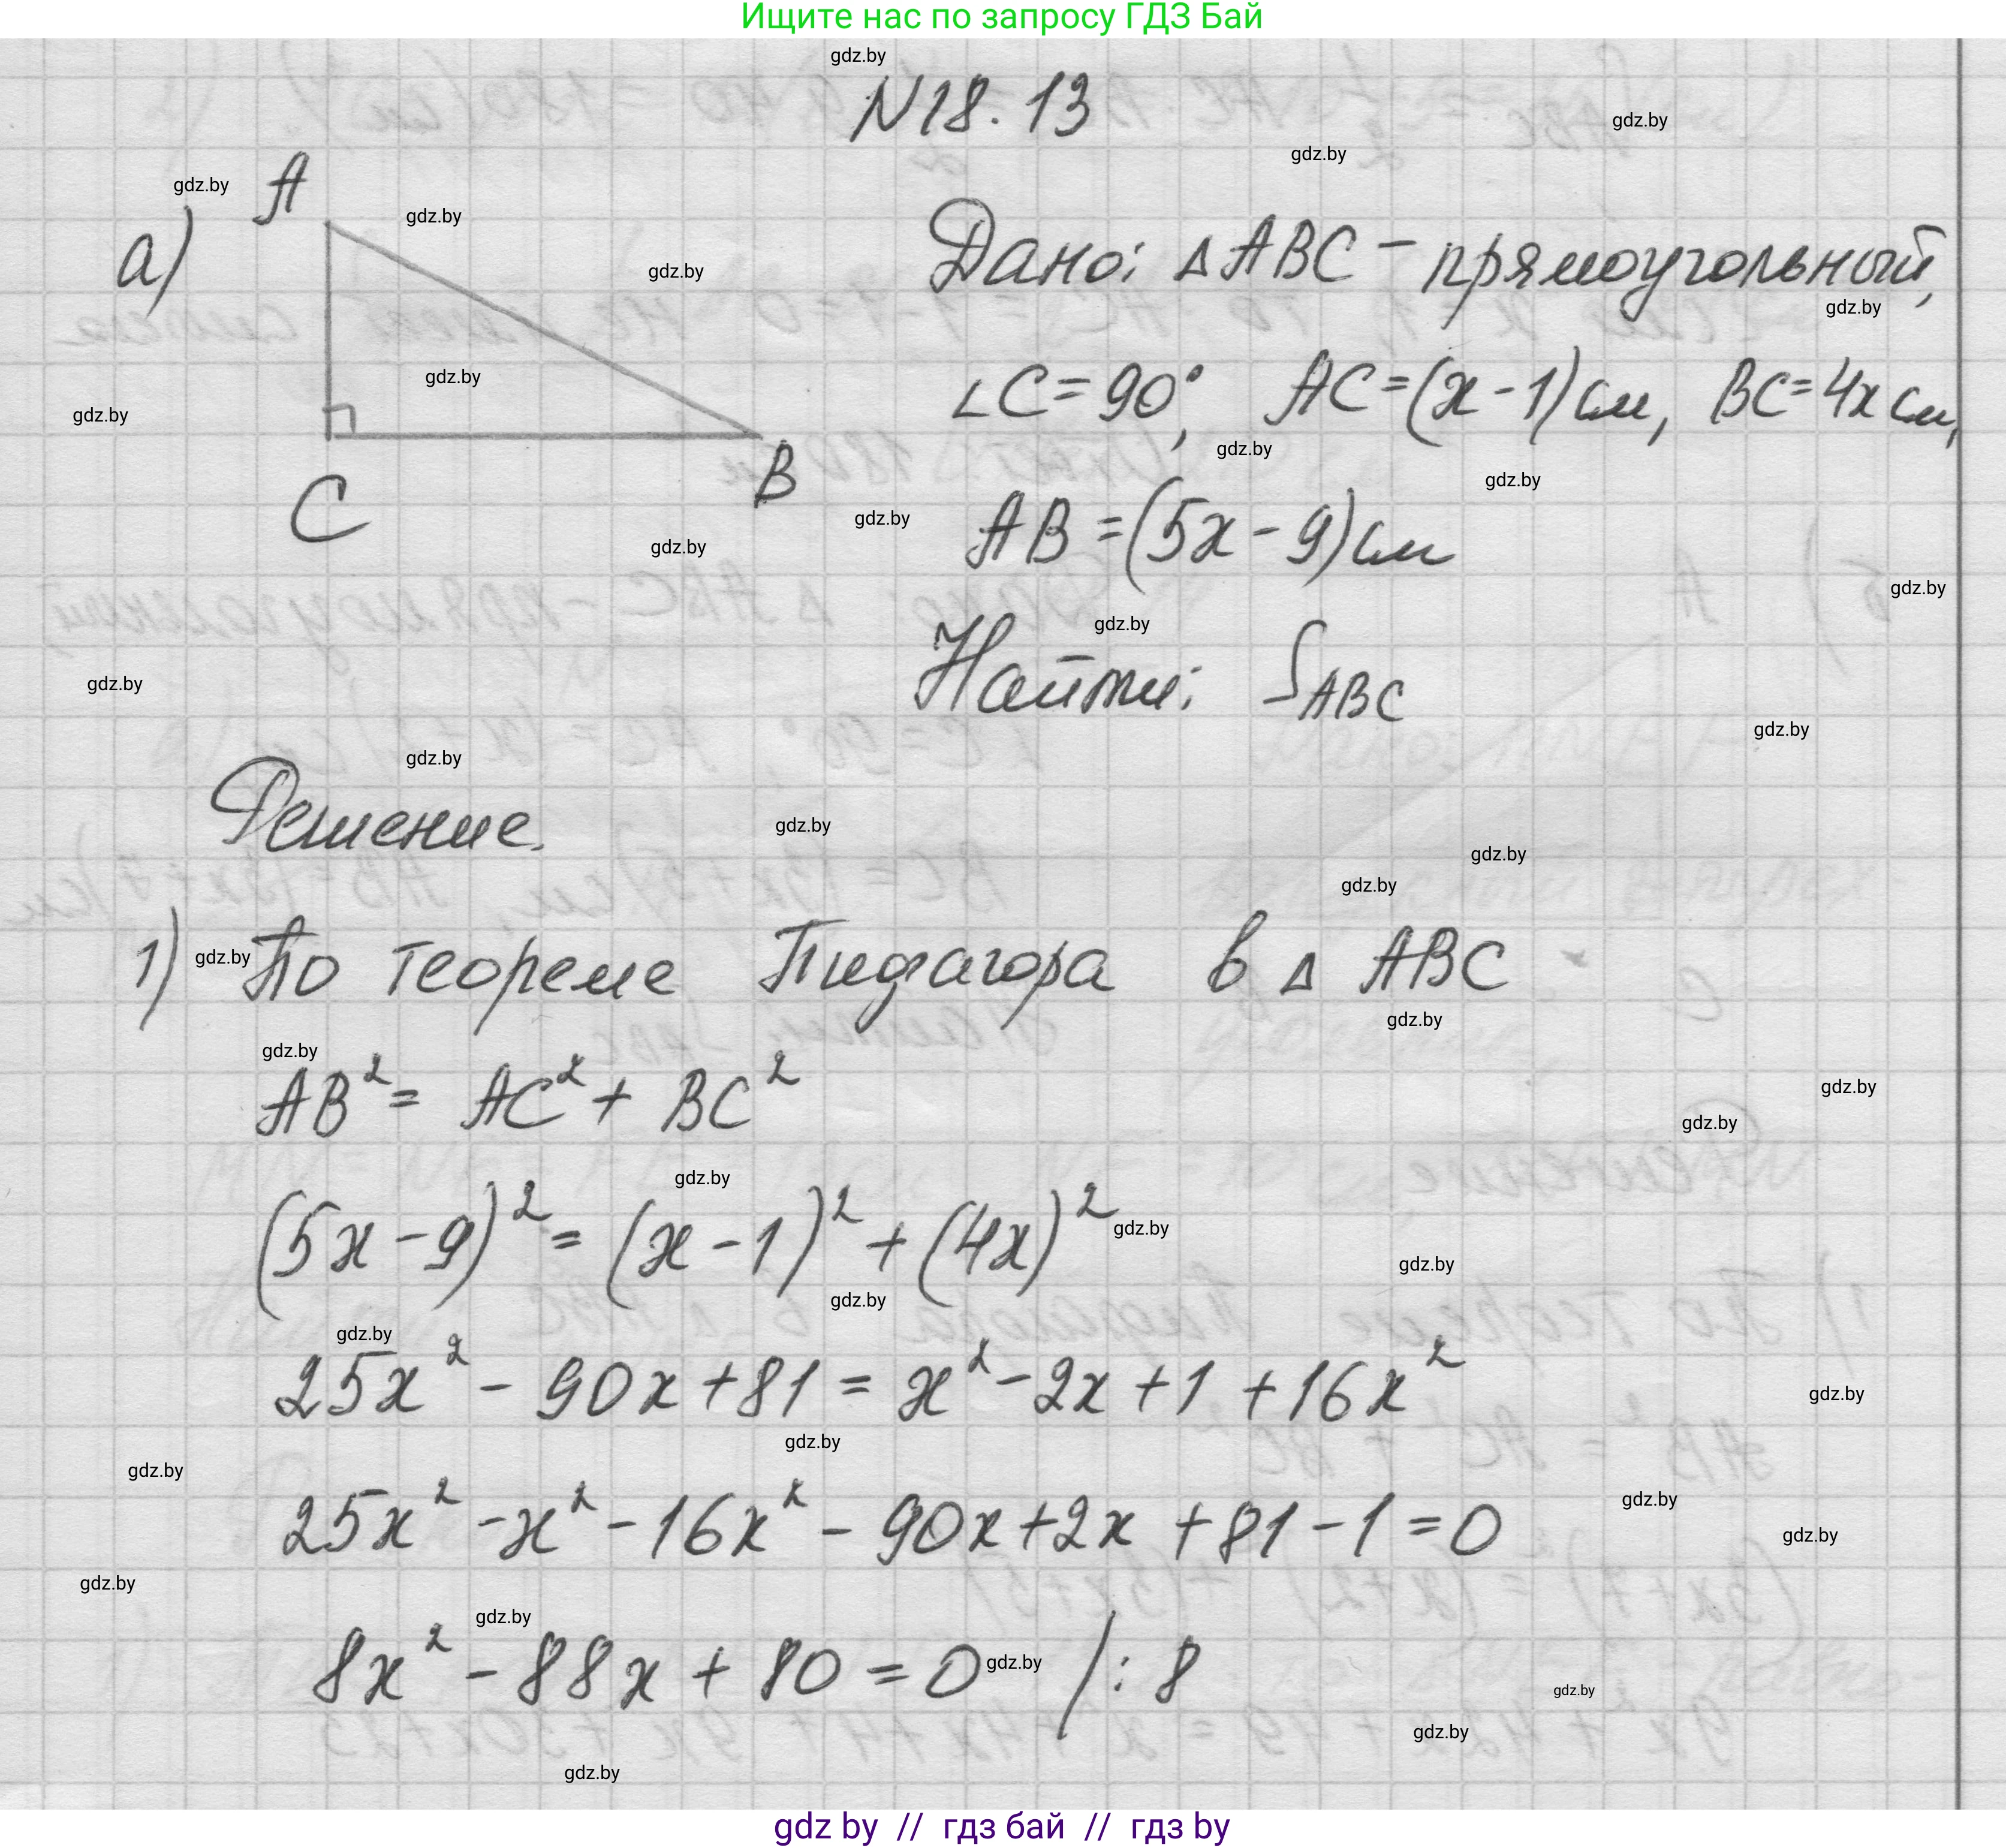 Ищите нас по запросу ГДЗ Бай
gdz.by
N18.13
gdz.by
gdz.by
а)
gdz.by
A
gdz.by
gdz.by
gdz.by
gdz.by
C
B
gdz.by
Дано: ΔABC - прямоугольный,
gdz.by
∠C = 90°, AC = (x - 1) см, BC = 4x см,
gdz.by
gdz.by
gdz.by
AB = (5x - 9) см
gdz.by
gdz.by
Найти: S_ABC
gdz.by
gdz.by
gdz.by
Решение.
gdz.by
gdz.by
gdz.by
1) gdz.by По теореме Пифагора в Δ ABC
gdz.by
gdz.by
AB² = AC² + BC²
gdz.by
gdz.by
gdz.by
(5x - 9)² = (x - 1)² + (4x)² gdz.by
gdz.by
gdz.by
gdz.by
25x² - 90x + 81 = x² - 2x + 1 + 16x²
gdz.by
gdz.by
gdz.by
gdz.by
25x² - x² - 16x² - 90x + 2x + 81 - 1 = 0
gdz.by
gdz.by
gdz.by
8x² - 88x + 80 = 0 gdz.by /: 8
gdz.by
gdz.by
gdz.by
gdz by // гдз бай // гдз by